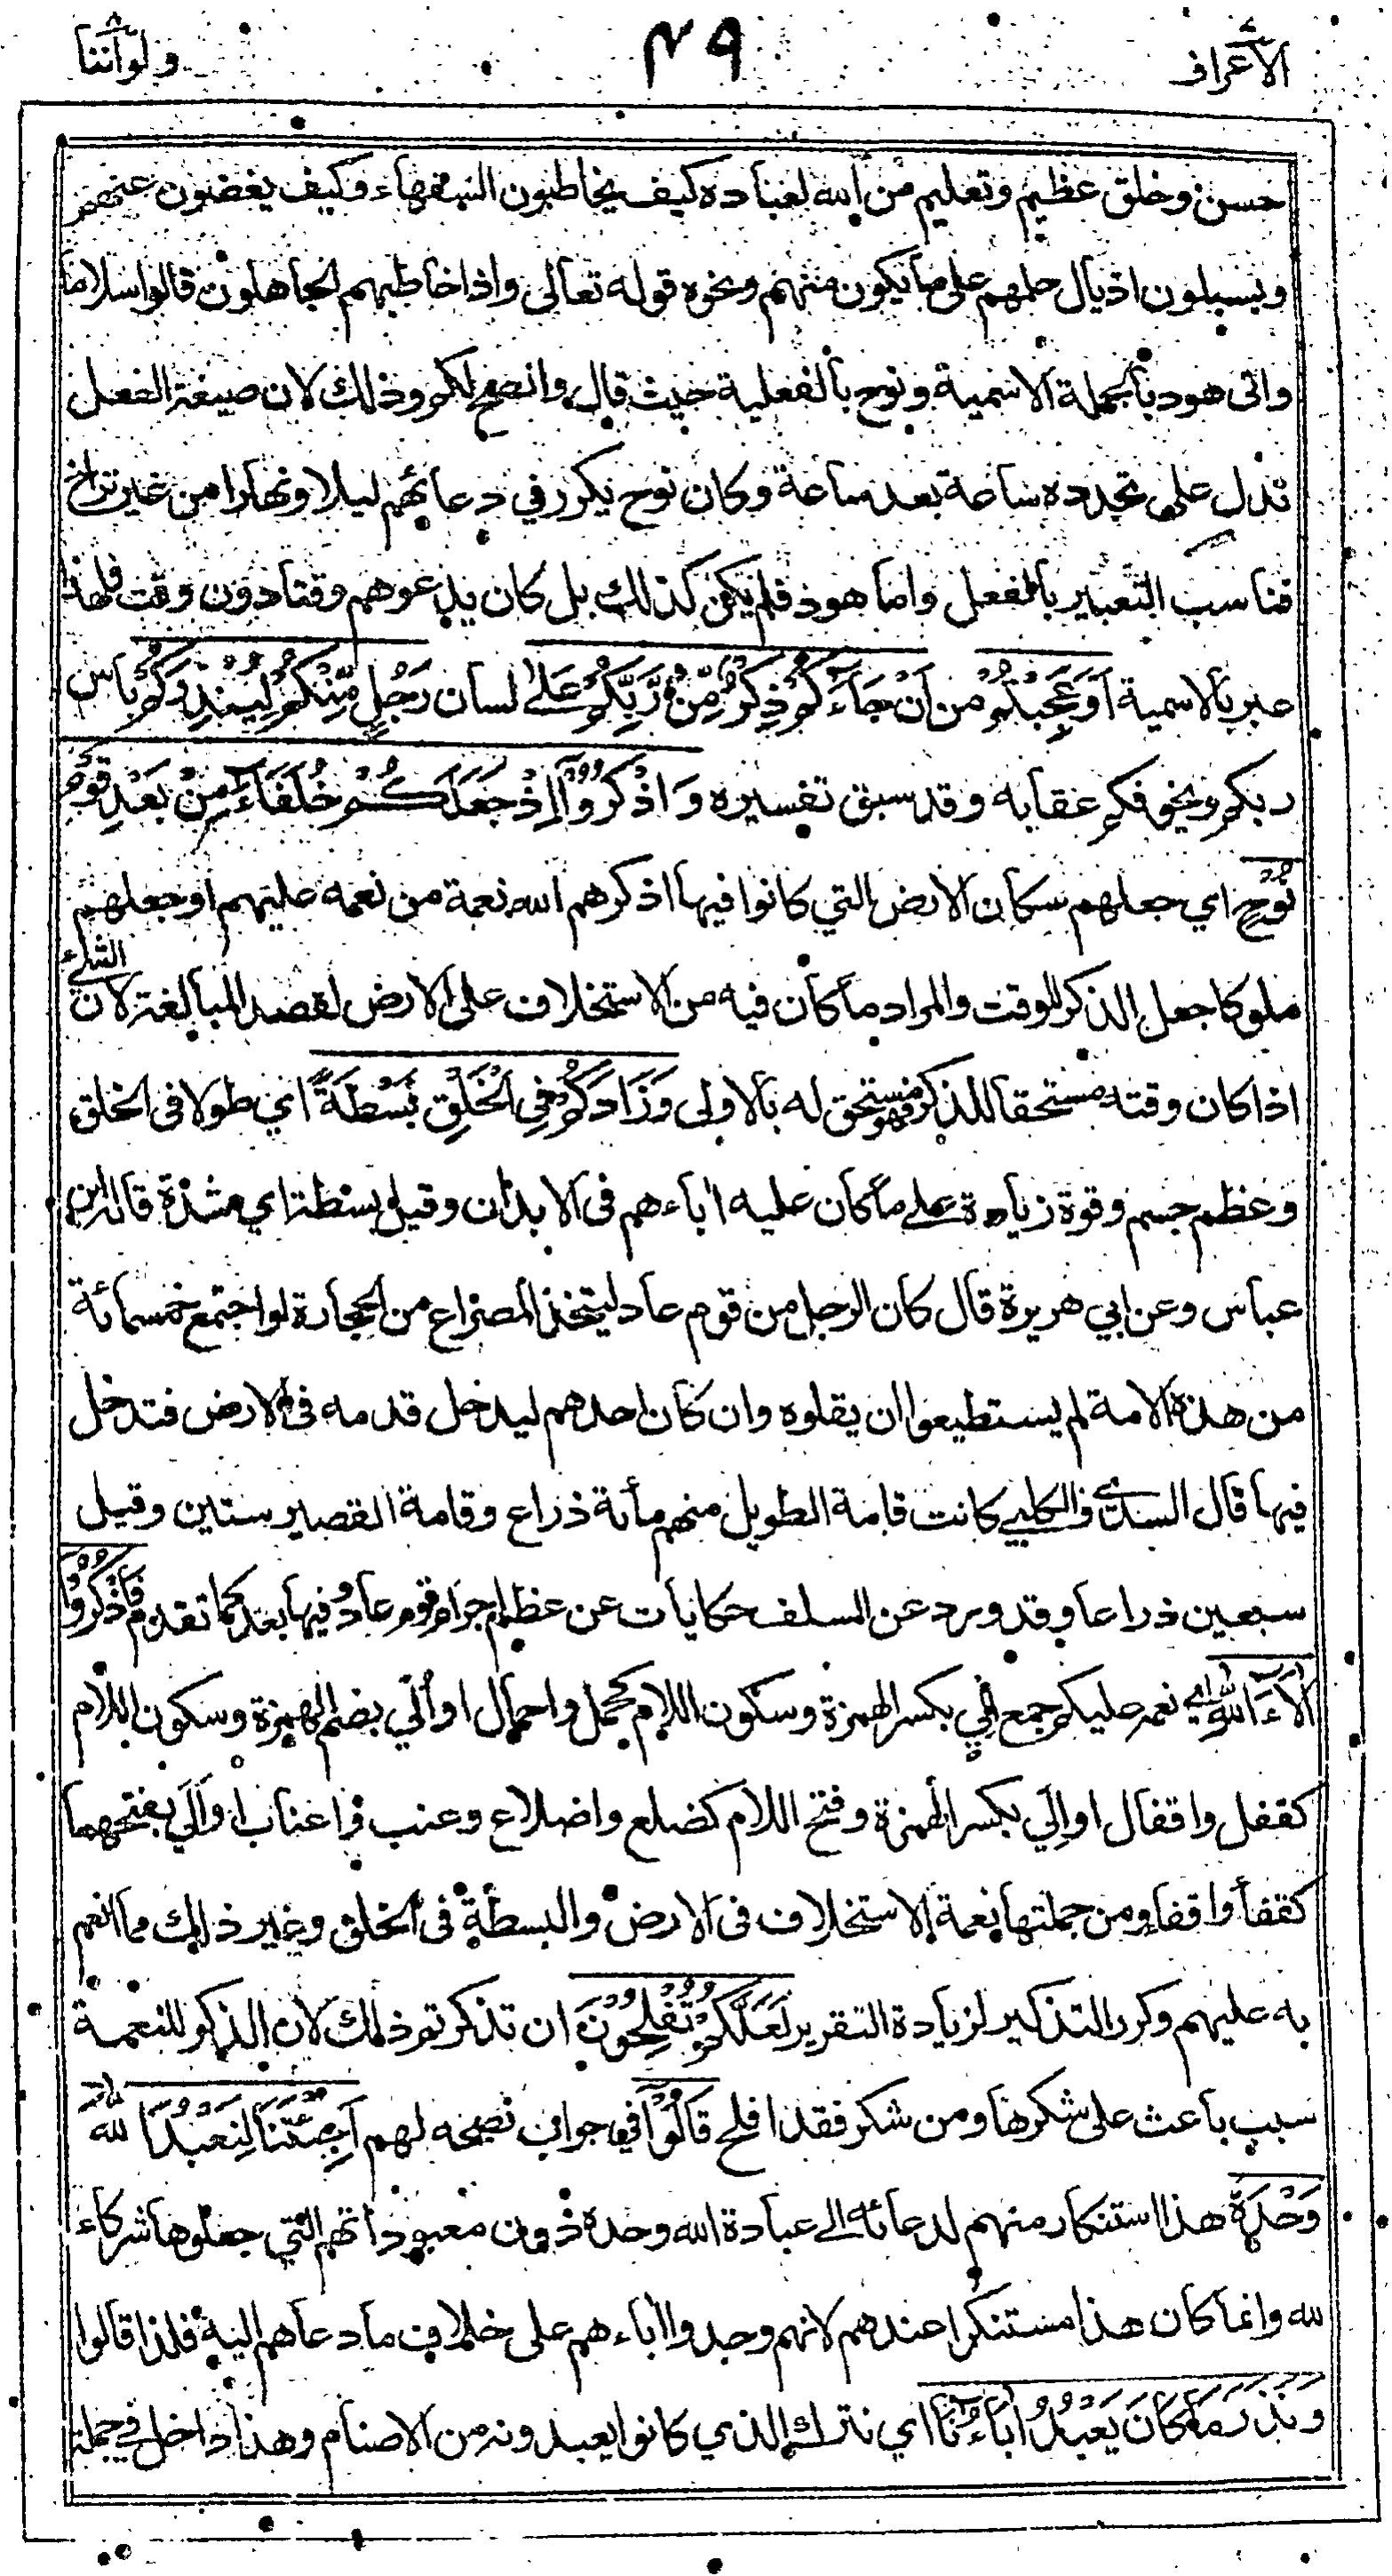 الأعراف
٤٩
ولو أننا
حسن وخلق عظيم وتعليم من الله لعباده كيف يخاطبون السفهاء وكيف يغضون عنهم
ويسبلون اذيال حلمهم على ما يكون منهم ونحوه قوله تعالى واذا خاطبهم الجاهلون قالوا سلاما
واتى هود بالجملة الاسمية ونوح بالفعلية حيث قال وانصح لكم وذلك لان صيغة الفعل
تدل على تجدده ساعة بعد ساعة وكان نوح يكرر في دعائهم ليلا ونهارا من غير تراخ
فناسب التعبير بالفعل واما هود فلم يكن كذلك بل كان يدعوهم وقتا دون وقت فلهذا
عبر بالاسمية اَوَعَجِبْتُمْ من اَنْ جَاءَكُمْ ذِكْرٌ مِّنْ رَّبِّكُمْ عَلى لسان رَجُلٍ مِّنْكُمْ لِيُنْذِرَكُمْ باس
ربكم ويخوفكم عقابه وقد سبق تفسيره وَاذْكُرُوْا اِذْ جَعَلَكُمْ خُلَفَاءَ مِنْ بَعْدِ قَوْمِ
نُوْحٍ اي جعلهم سكان الارض التي كانوا فيها اذكرهم الله نعمة من نعمه عليهم او جعلهم
ملوكا جعل الذكر للوقت والمراد ما كان فيه من الاستخلاف على الارض لقصد المبالغة لان الشئ
اذا كان وقته مستحقا للذكر فهو مستحق له بالاولى وَزَادَكُمْ فِي الْخَلْقِ بَسْطَةً اي طولا في الخلق
وعظم جسم وقوة زيادة على ما كان عليه اباءهم في الابدان وقيل بسطة اي شدة قاله ابن
عباس وعن ابي هريرة قال كان الرجل من قوم عاد ليتخذ المصراع من الحجارة لو اجتمع خمسمائة
من هذه الامة لم يستطيعوا ان يقلوه وان كان احدهم ليدخل قدمه في الارض فتدخل
فيها قال السدي والكلبي كانت قامة الطويل منهم مأة ذراع وقامة القصير ستين وقيل
سبعين ذراعا وقد ورد عن السلف حكايات عن عظم اجرام قوم عاد وفيها بعد كما تقدم فَاذْكُرُوْا
اٰلَاءَ اللهِ اي نعمه عليكم جمع اِلْي بكسر الهمزة وسكون اللام كحمل واحمال او اُلْي بضم الهمزة وسكون اللام
كقفل واقفال او اِلَي بكسر الهمزة وفتح اللام كضلع واضلاع وعنب واعناب او اَلَي بفتحهما
كقفا واقفا ومن جملتها نعمة الاستخلاف في الارض والبسطة في الخلق وغير ذلك مما انعم
به عليهم وكرر التذكير لزيادة التقرير لَعَلَّكُمْ تُفْلِحُوْنَ ان تذكرتم ذلك لان الذكر للنعمة
سبب باعث على شكرها ومن شكر فقد افلح قَالُوْا في جواب نصحه لهم اَجِئْتَنَا لِنَعْبُدَ اللهَ
وَحْدَهٗ هذا استنكار منهم لدعائه الى عبادة الله وحده دون معبوداتهم التي جعلوها شركاء
لله وانما كان هذا مستنكرا عندهم لانهم وجدوا اباءهم على خلاف ما دعاهم اليه فلذا قالوا
وَنَذَرَ مَا كَانَ يَعْبُدُ اٰبَاؤُنَا اي نترك الذي كانوا يعبدونه من الاصنام وهذا داخل في جملة